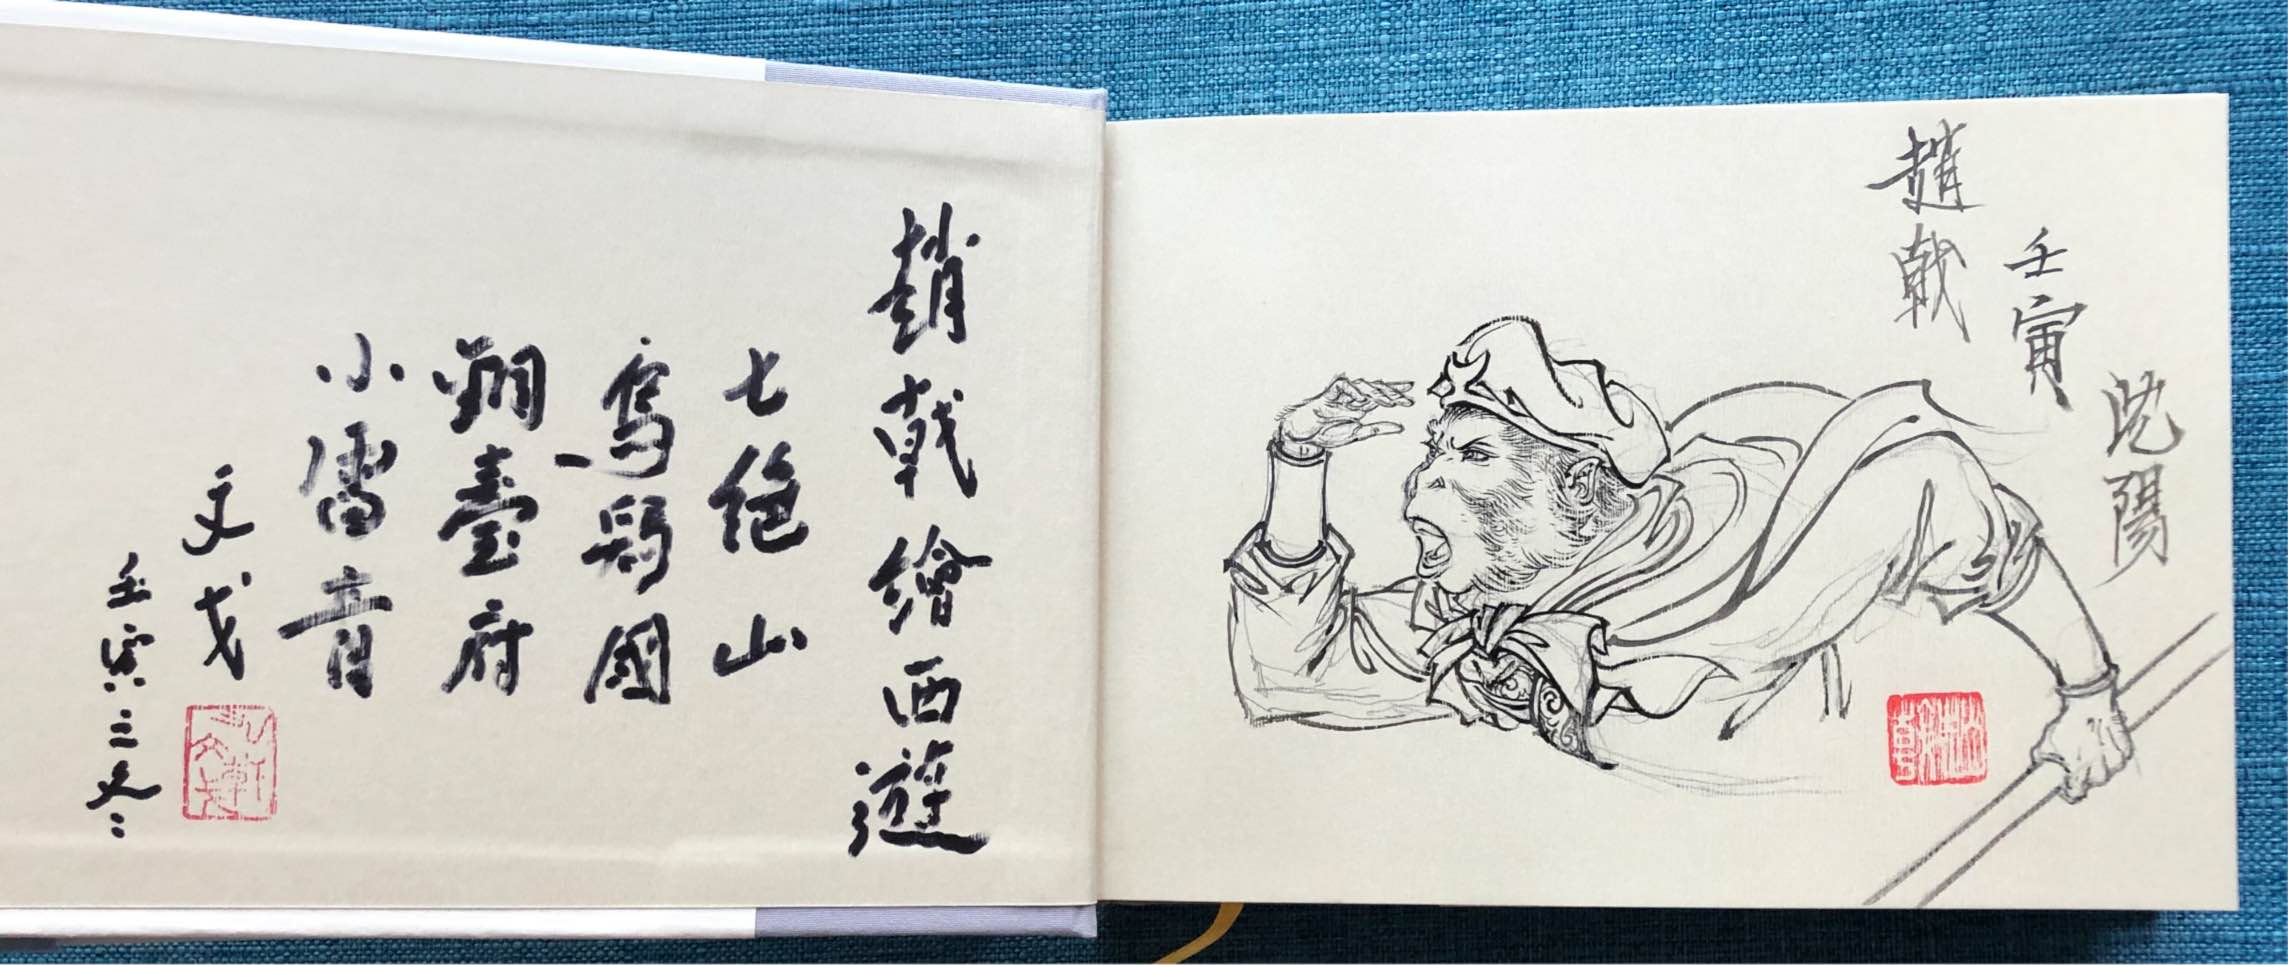 趙戟繪西遊
七絕山
烏鷄國
銅臺府
小雷音
文戈
壬寅三冬
沈陽
壬寅
趙戟